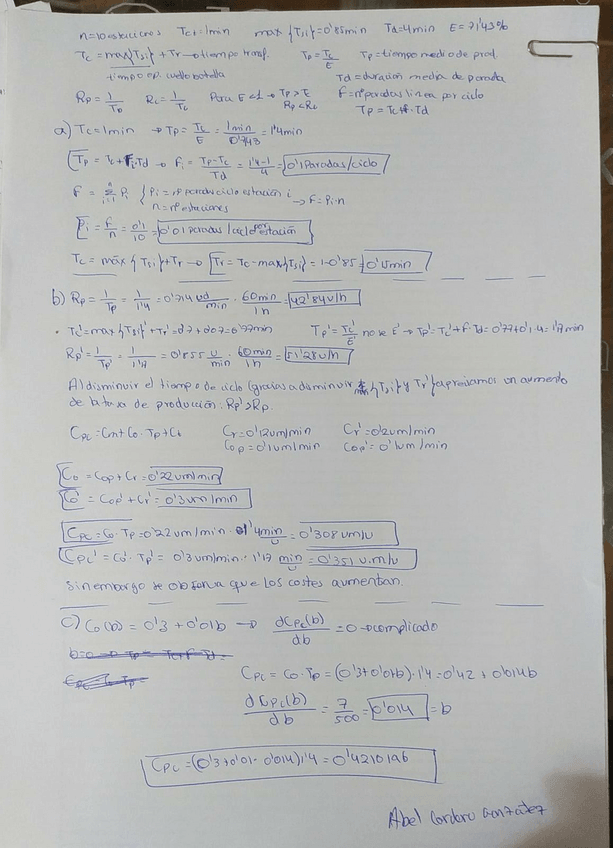 n=10 estaciones Tc=1min max{Tsi}=0'85min Td=4min E=71'43%
Tc = max{Tsi} + Tr → tiempo transf. Tp = Tc/E Tp=tiempo medio de prod.
tiempo op. cuello botella Td = duración media de parada
Rp = 1/Tp Rc = 1/Tc Para E<1 → Tp > Tc Rp < Rc F = nº paradas línea por ciclo
Tp = Tc + F·Td
a) Tc=1min → Tp = Tc/E = 1min/0'7143 = 1'4min
Tp = Tc + F·Td → F = (Tp-Tc)/Td = (1'4-1)/4 = 0'1 Paradas/ciclo
F = Σ Pi { Pi = nº paradas ciclo estación i
n = nº estaciones → F = Pi·n
Pi = F/n = 0'1/10 = 0'01 paradas/ciclo por estación
Tc = máx{Tsi} + Tr → Tr = Tc - max{Tsi} = 1-0'85 = 0'15min
b) Rp = 1/Tp = 1/1'4 = 0'714 ud/min · 60min/1h = 42'84u/h
· Tc' = max{Tsi}' + Tr' = 0'7+0'07 = 0'77min Tp' = Tc'/E' no se E' → Tp' = Tc' + F·Td = 0'77+0'1·4 = 1'17min
Rp' = 1/Tp' = 1/1'17 = 0'855 u/min · 60min/1h = 51'28u/h
Al disminuir el tiempo de ciclo (gracias a disminuir {Tsi} y Tr') apreciamos un aumento
de la tasa de producción: Rp' > Rp.
Cpc = Cm + Co·Tp + Ct Cr = 0'12um/min Cr' = 0'2um/min
Cop = 0'1um/min Cop' = 0'1um/min
Co = Cop + Cr = 0'22um/min
Co' = Cop' + Cr' = 0'3um/min
Cpc = Co·Tp = 0'22um/min · 1'4min/u = 0'308um/u
Cpc' = Co'·Tp' = 0'3um/min · 1'17 min/u = 0'351u.m/u
Sin embargo se observa que los costes aumentan.
c) Co(b) = 0'3 + 0'01b → dCpc(b)/db = 0 → complicado
Cpc = Co·Tp = (0'3+0'01b)·1'4 = 0'42 + 0'014b
dCpc(b)/db = 7/500 = 0'014 = b
Cpc = (0'3+0'01·0'014)1'4 = 0'4210196
Abel Cordero González